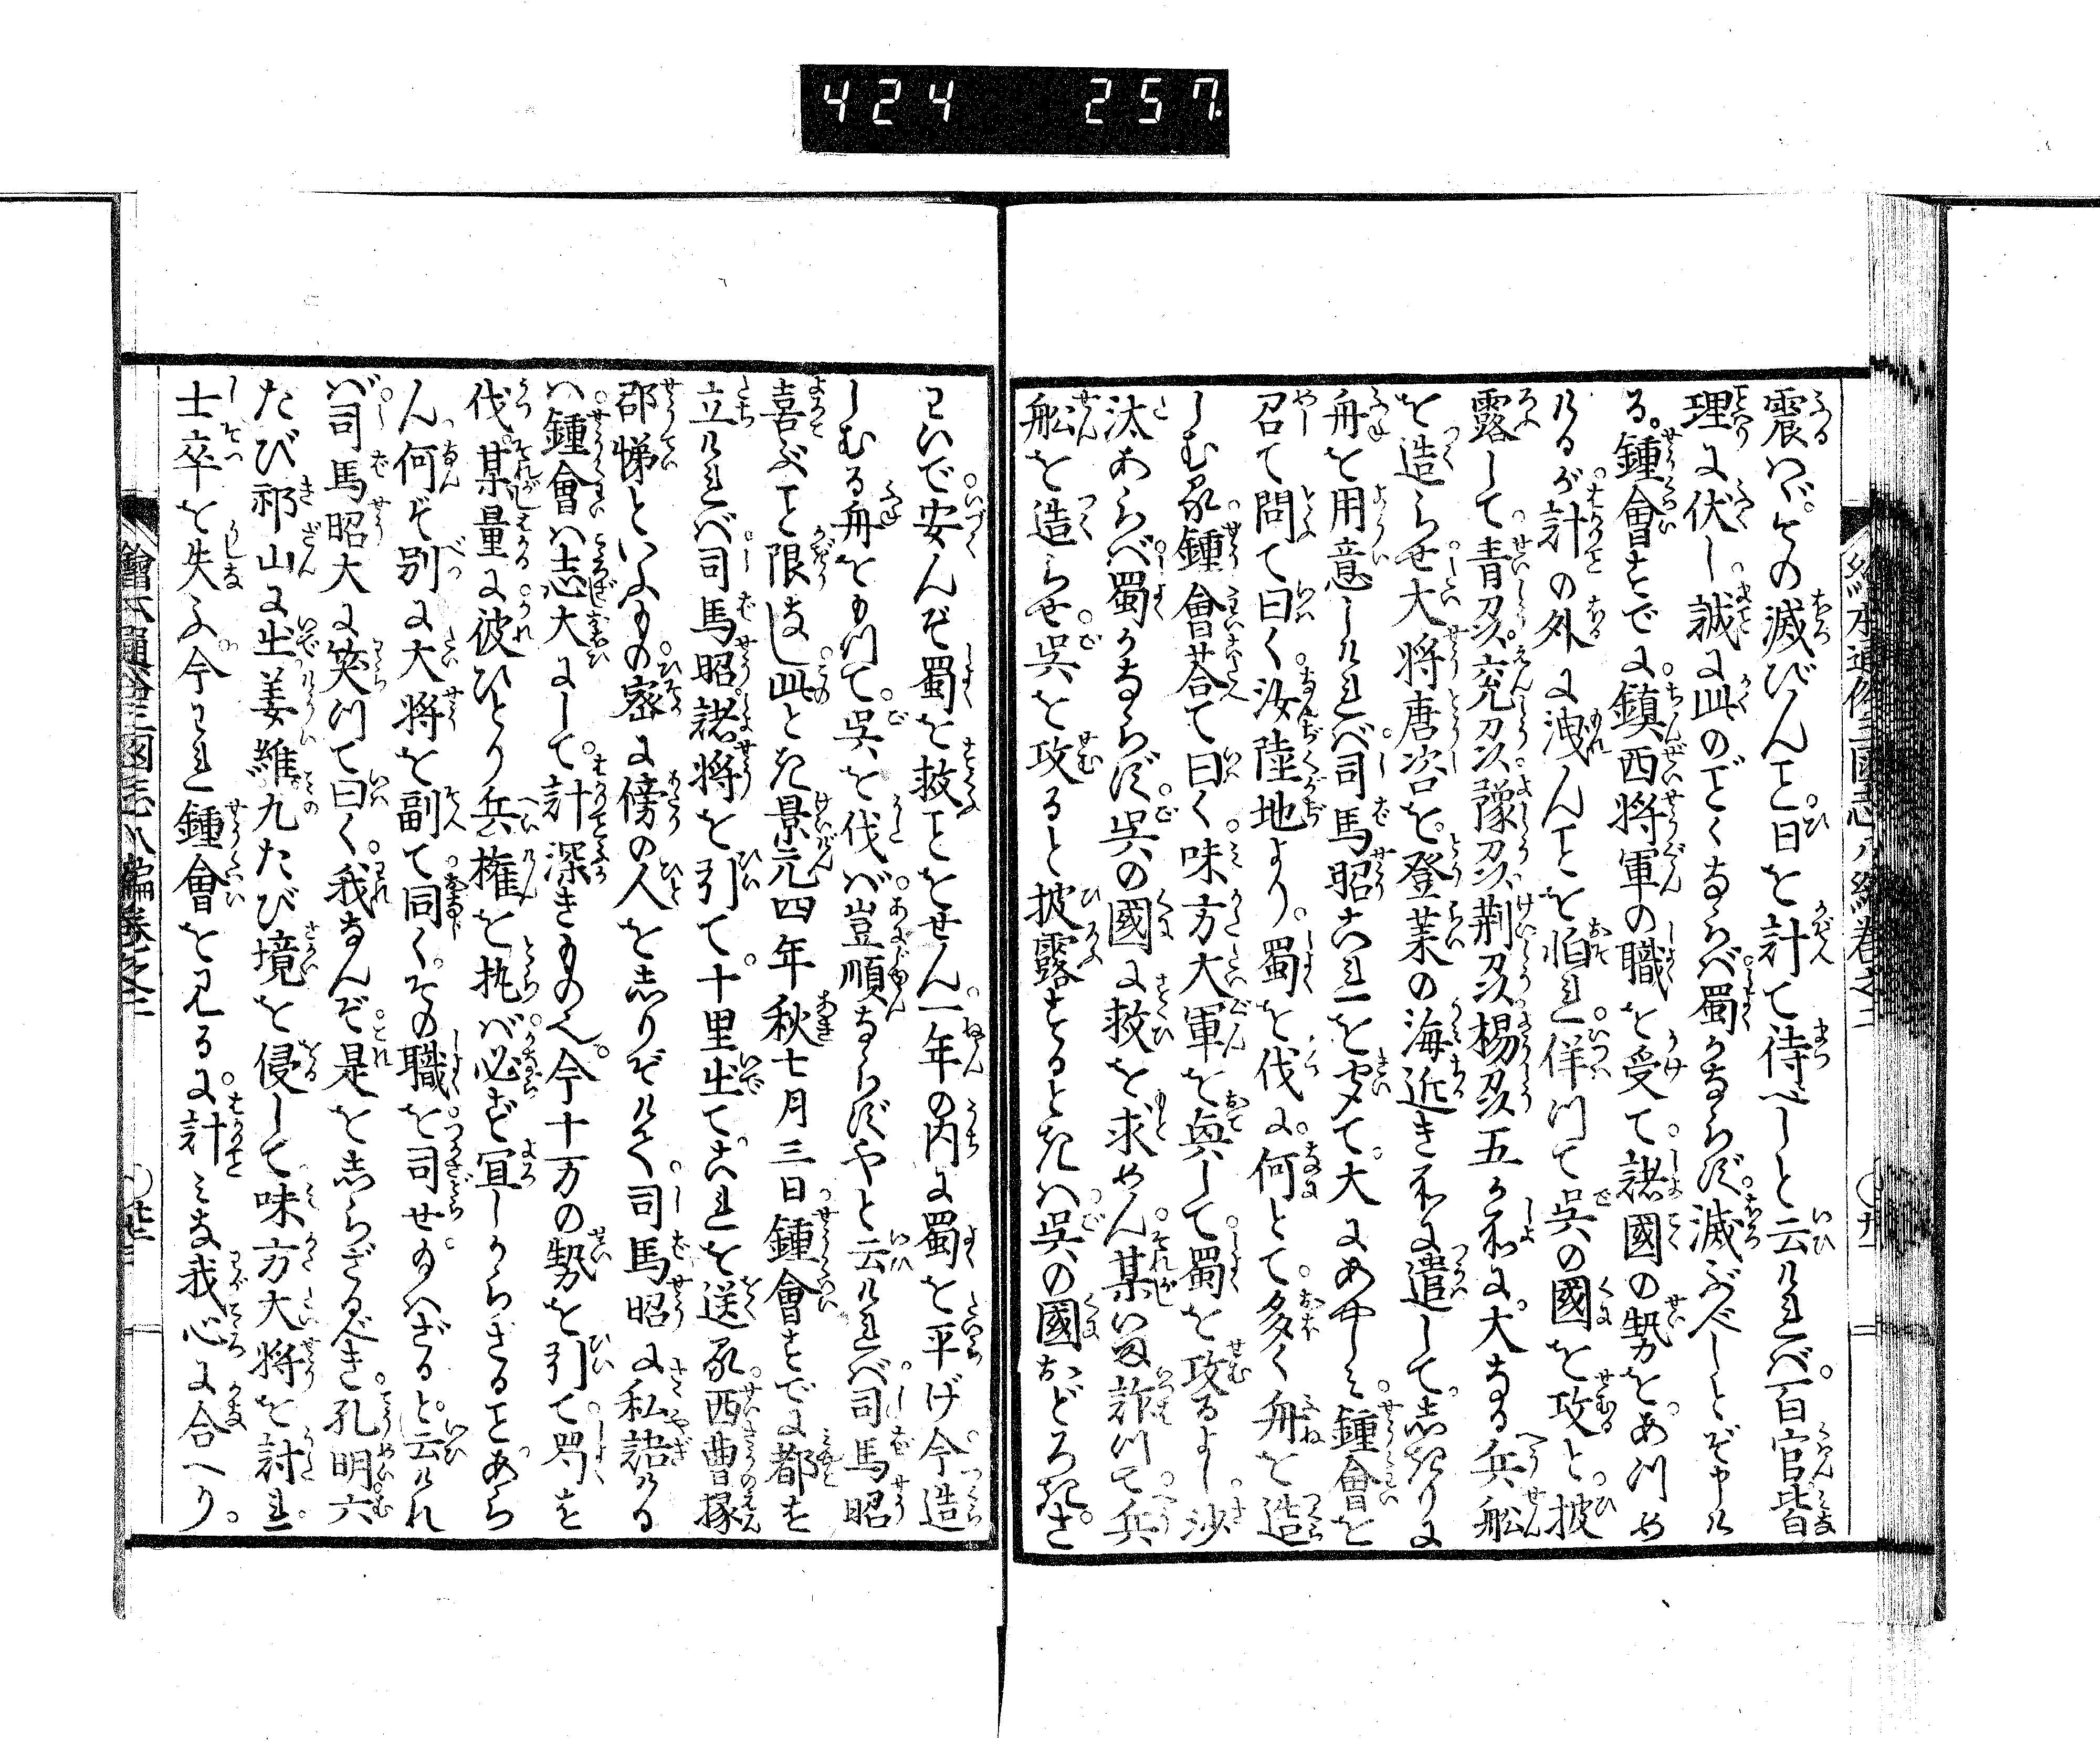 424 257
震はゞ。その滅びんこと。日を計て待べしと云ければ。百官皆
理に伏し。誠に此のごとくならば蜀かならず。滅ぶべしとぞ申け
る。鍾會すでに。鎮西将軍の職を受て。諸國の勢をあつめ
けるが。計の外に洩んことを怕れ。佯つて呉の國を攻と披
露して。青州。兗州。豫州。荊州。楊州五か所に。大なる兵舩
を造らせ。大将唐咨を。登莱の海近き所に遣して。しきりに
舟を用意しければ。司馬昭これを聞て。大にあやしみ。鍾會を
召て問て曰く。汝陸地より。蜀を伐に。何とて。多く舟を造
しむる。鍾會荅て曰く。味方大軍を興して。蜀を攻るよし。沙
汰あらば。蜀かならず。呉の國に救を求めん。某いま詐つて兵
舩を造らせ。呉を攻ると披露するときは。呉の國おどろきさ
わいで。安んぞ蜀を救ことをせん。一年の内に蜀を平げ。今造
しむる舟をもつて。呉を伐ば。豈順ならずやと云ければ。司馬昭
喜ぶこと限なし。此とき景元四年秋七月三日。鍾會すでに都を
立ければ。司馬昭。諸将を引て。十里出て。これを送る。西曹掾
邵悌といふもの。密に傍の人をしりぞけて。司馬昭に私語ける
は。鍾會は志大にして。計深きもの也。今十万の勢を引て。蜀を
伐。某量に。彼ひとり兵権を執ば。必ず宜しからざることあら
ん。何ぞ別に大将を副て。同く。その職を司せ給はざると。云けれ
ば。司馬昭大に笑つて曰く。我なんぞ。是をしらざるべき。孔明六
たび祁山に出。姜維。九たび境を侵して。味方大将を討れ。
士卒を失ふ。今われ鍾會を見るに。計みな我心に合へり。
繪本通俗三國志八編巻之二
繪本通俗三國志八編巻之二